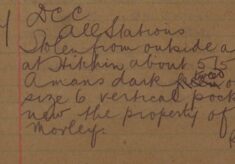 DCC
All Stations
Stolen from outside a
at Hitchin about 515
a mans dark
size 6 vertical pock
new the property of
Morley.